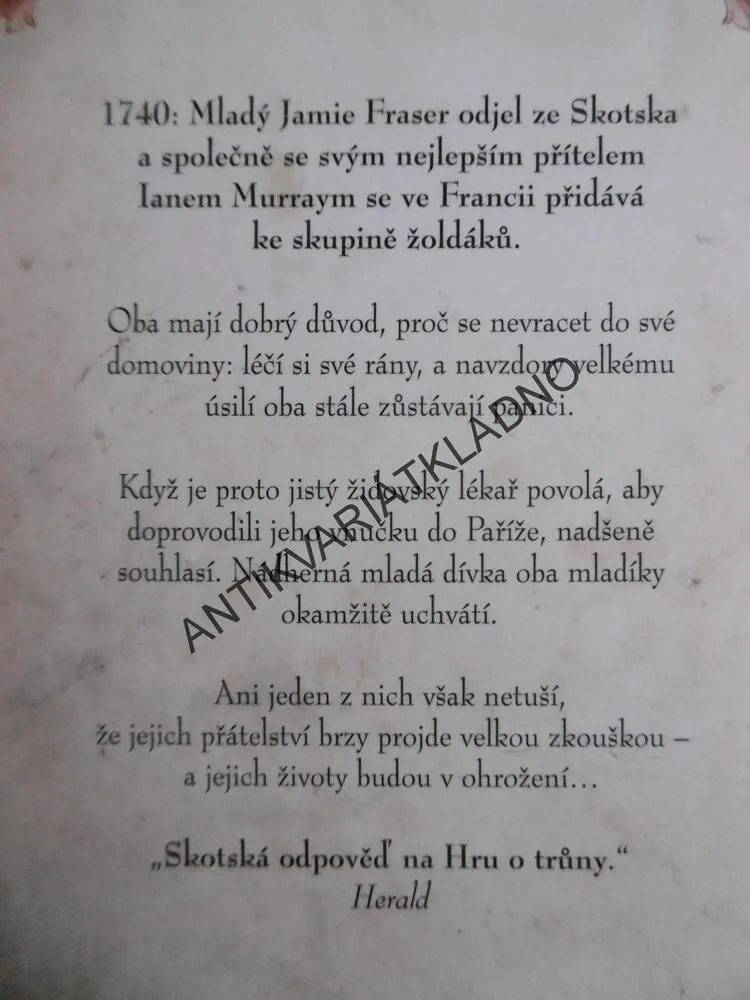 1740: Mladý Jamie Fraser odjel ze Skotska
a společně se svým nejlepším přítelem
Ianem Murraym se ve Francii přidává
ke skupině žoldáků.
Oba mají dobrý důvod, proč se nevracet do své
domoviny: léčí si své rány, a navzdory velkému
úsilí oba stále zůstávají panici.
Když je proto jistý židovský lékař povolá, aby
doprovodili jeho vnučku do Paříže, nadšeně
souhlasí. Nádherná mladá dívka oba mladíky
okamžitě uchvátí.
Ani jeden z nich však netuší,
že jejich přátelství brzy projde velkou zkouškou –
a jejich životy budou v ohrožení...
„Skotská odpověď na Hru o trůny.“
Herald
ANTIKVARIÁTKLADNO